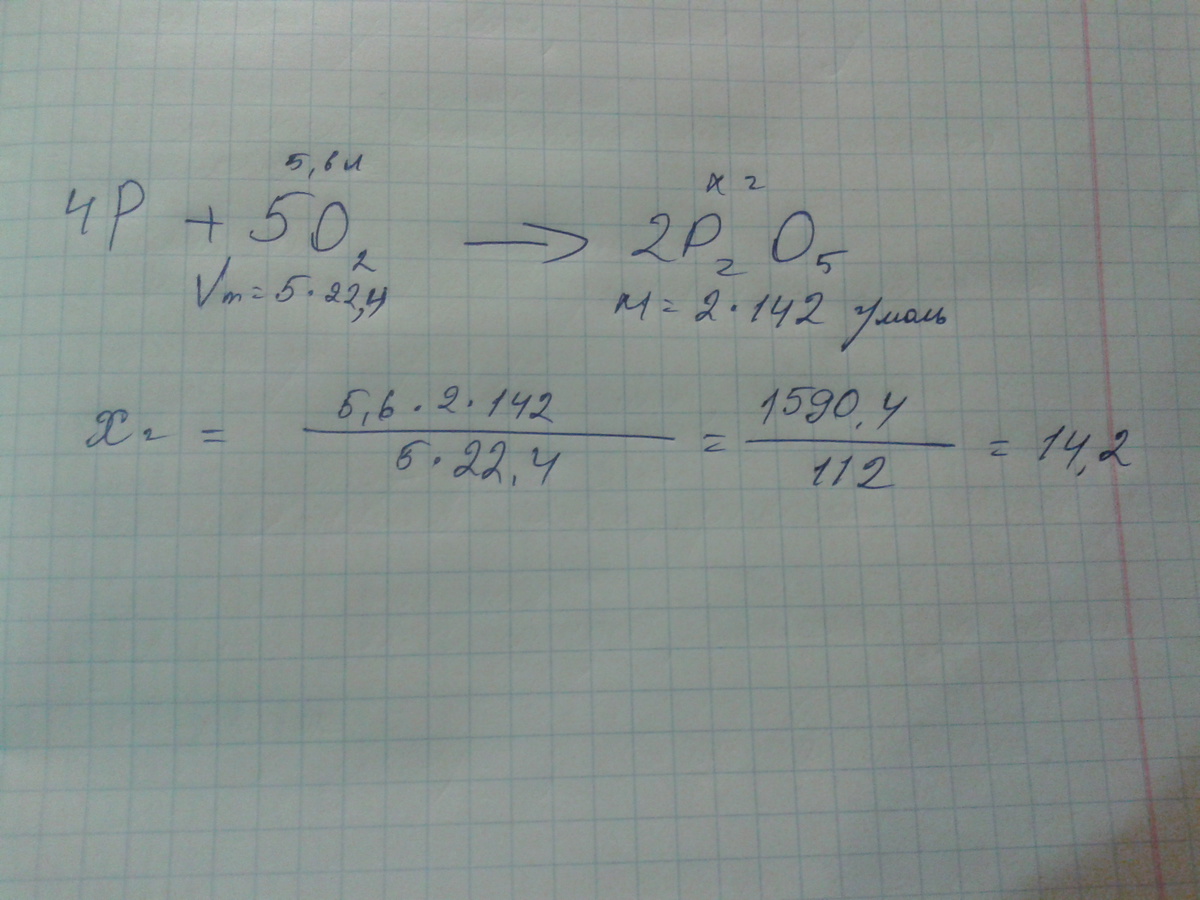 5,6л х г
4P + 5O₂ → 2P₂O₅
Vm = 5·22,4 M = 2·142 г/моль
Xг = 5,6·2·142 / 5·22,4 = 1590,4 / 112 = 14,2